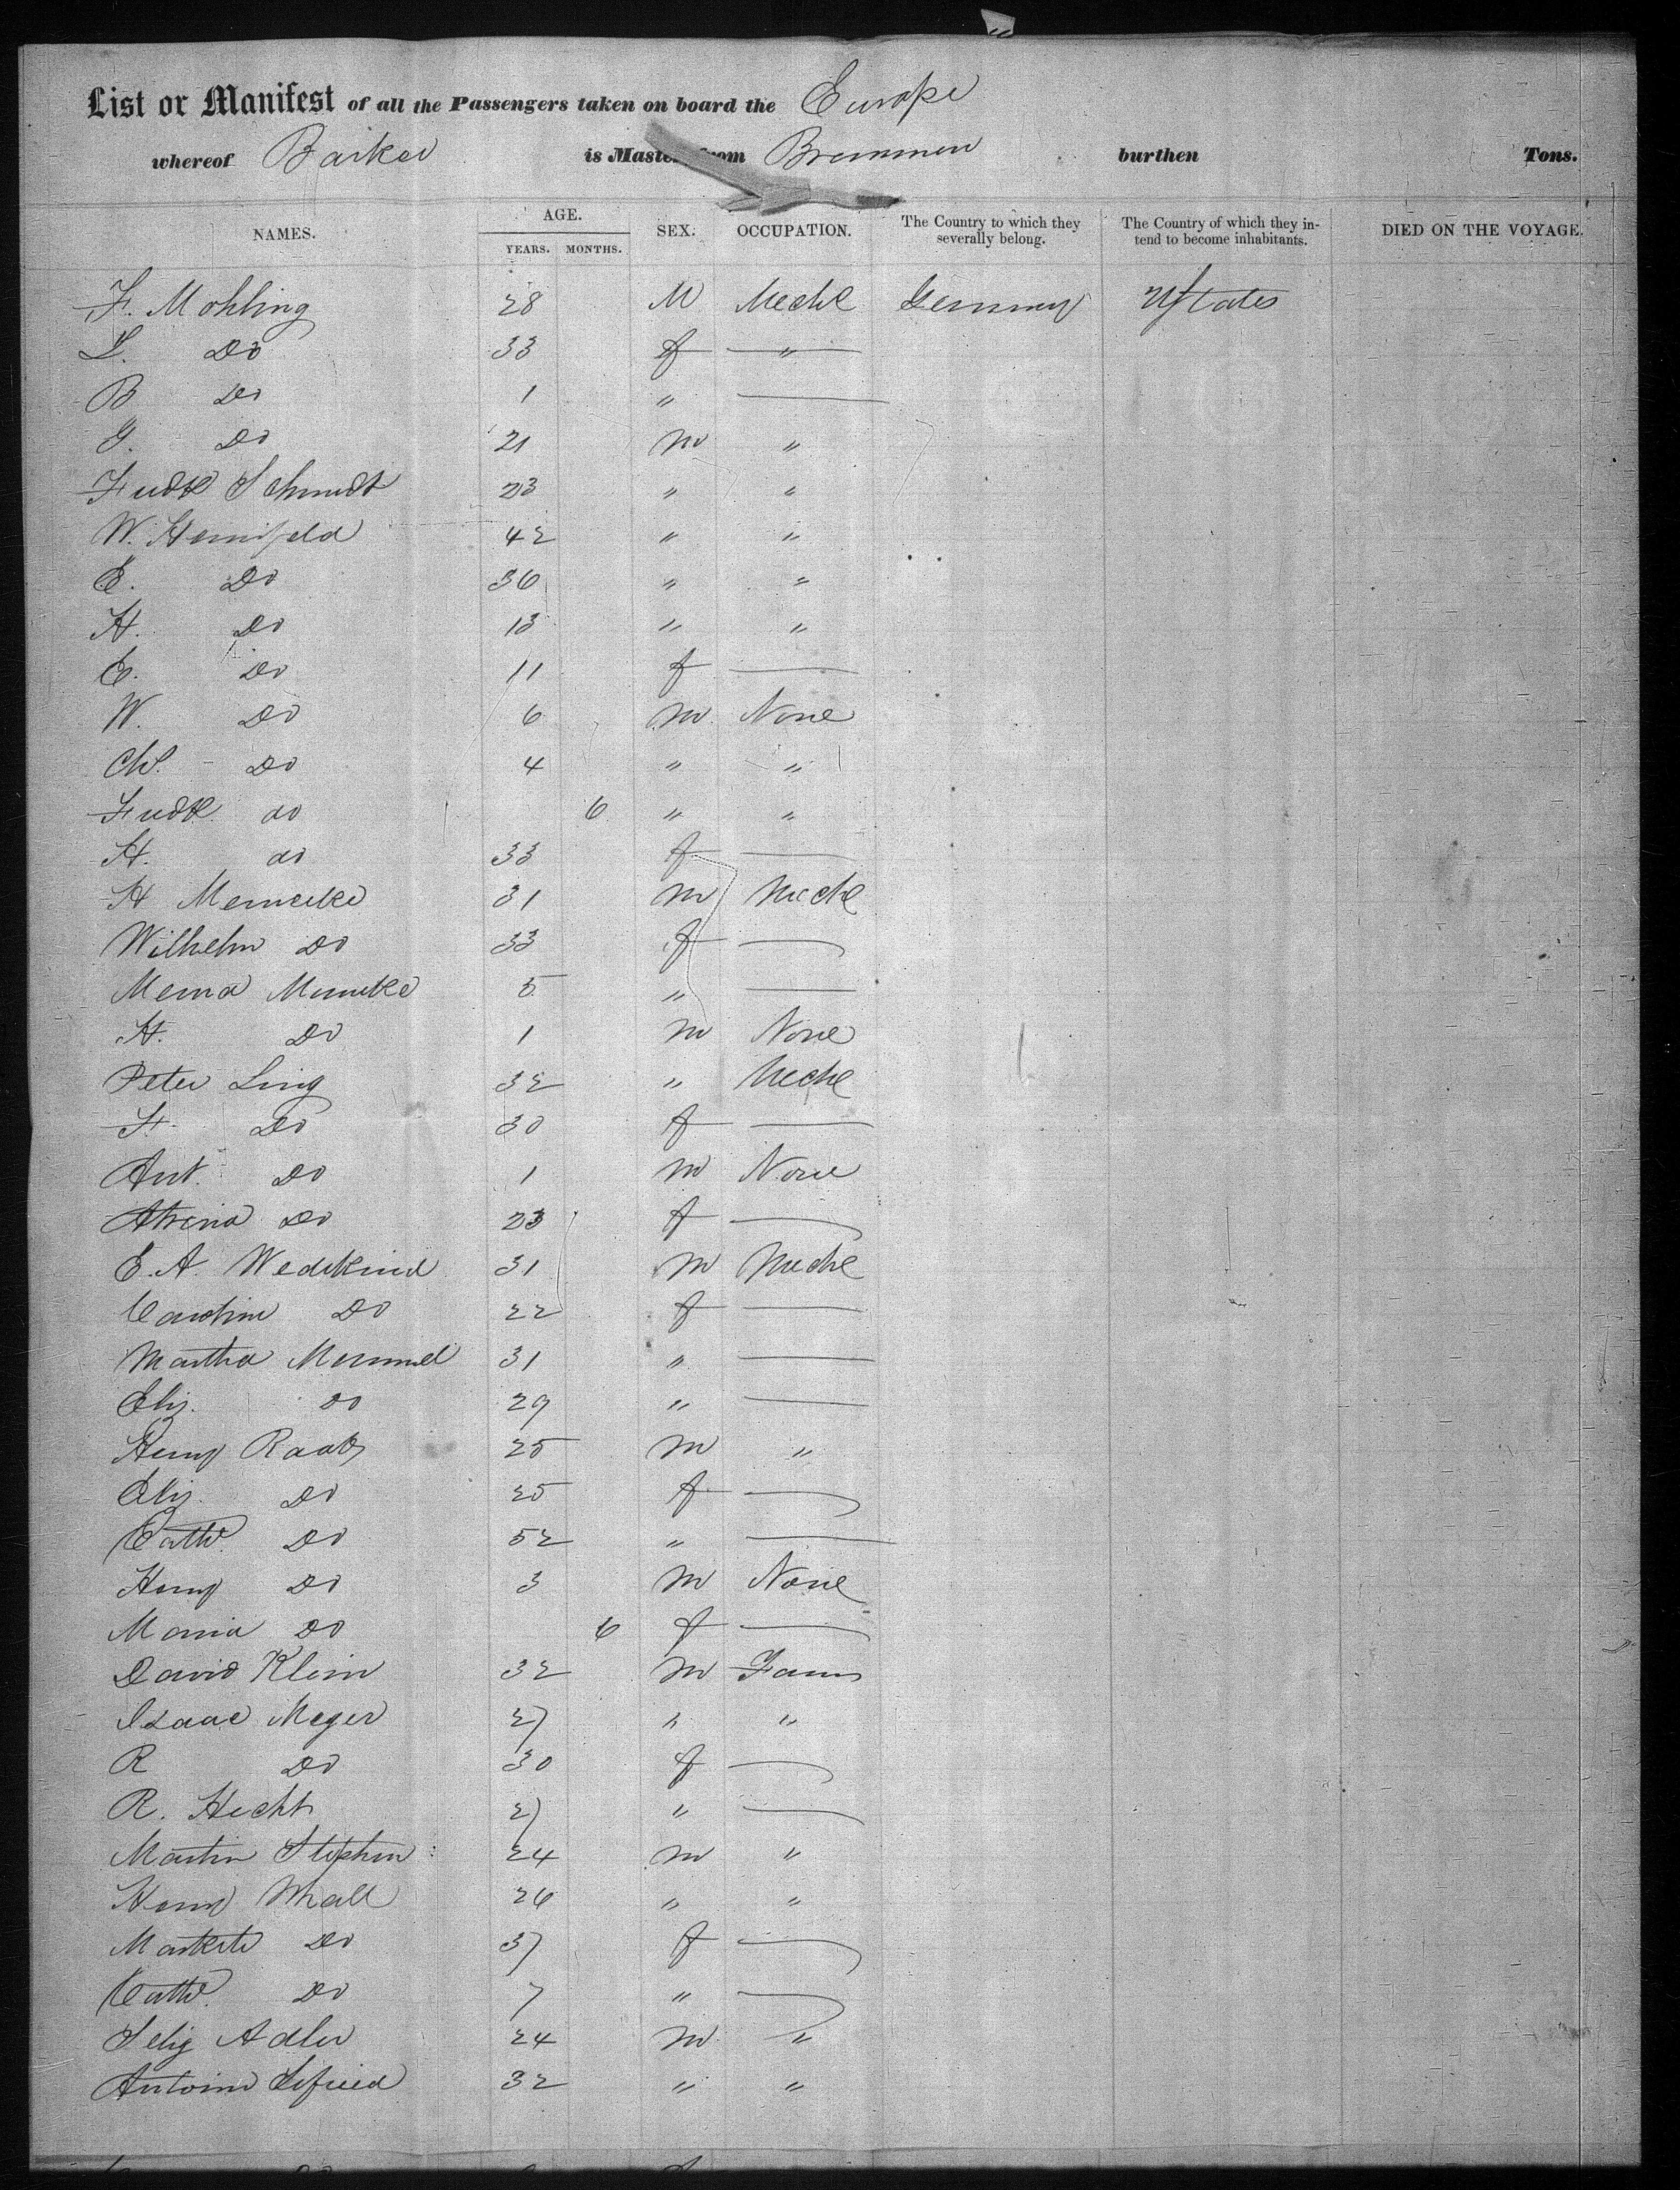 List or Manifest of all the Passengers taken on board the Europe
whereof Barker is Master, from Bremmen burthen Tons.
NAMES. AGE. YEARS. MONTHS. SEX. OCCUPATION. The Country to which they severally belong. The Country of which they intend to become inhabitants. DIED ON THE VOYAGE.
F. Mohling 28 M Mechc Germany UStates
L. Do 33 f "
B Do 1 "
G. Do 21 m "
Fredk Schmidt 23 " "
W. 42 " "
E. Do 36 " "
H. Do 13 " "
E. Do 11 f
W. Do 6 m None
Chs. Do 4 " "
Fredk do 6 " "
H. do 33 f
H Meineike 31 m Mechc
Wilhelm Do 33 f
Meina Meineke 5 "
H. Do 1 m None
Peter Ling 32 " Mechc
F. Do 30 f
Ant. Do 1 m None
Do 23 f
E. A. Wedekind 31 m Mechc
Caroline Do 22 f
Martha Mummel 31 "
Eliz. Do 29 "
Henry Raab 25 m "
Eliz. Do 25 f
Cathe. Do 52 "
Henry Do 3 m None
Maria Do 6 f
David Klein 32 m Farm
Isaac Meyer 27 " "
R Do 30 f
R. Hecht 27 "
Martin Stephen 24 m "
Henry Mall 26 " "
Do 37 f
Cathe. Do 7 "
Selig Adler 24 m "
Antoine 32 " "